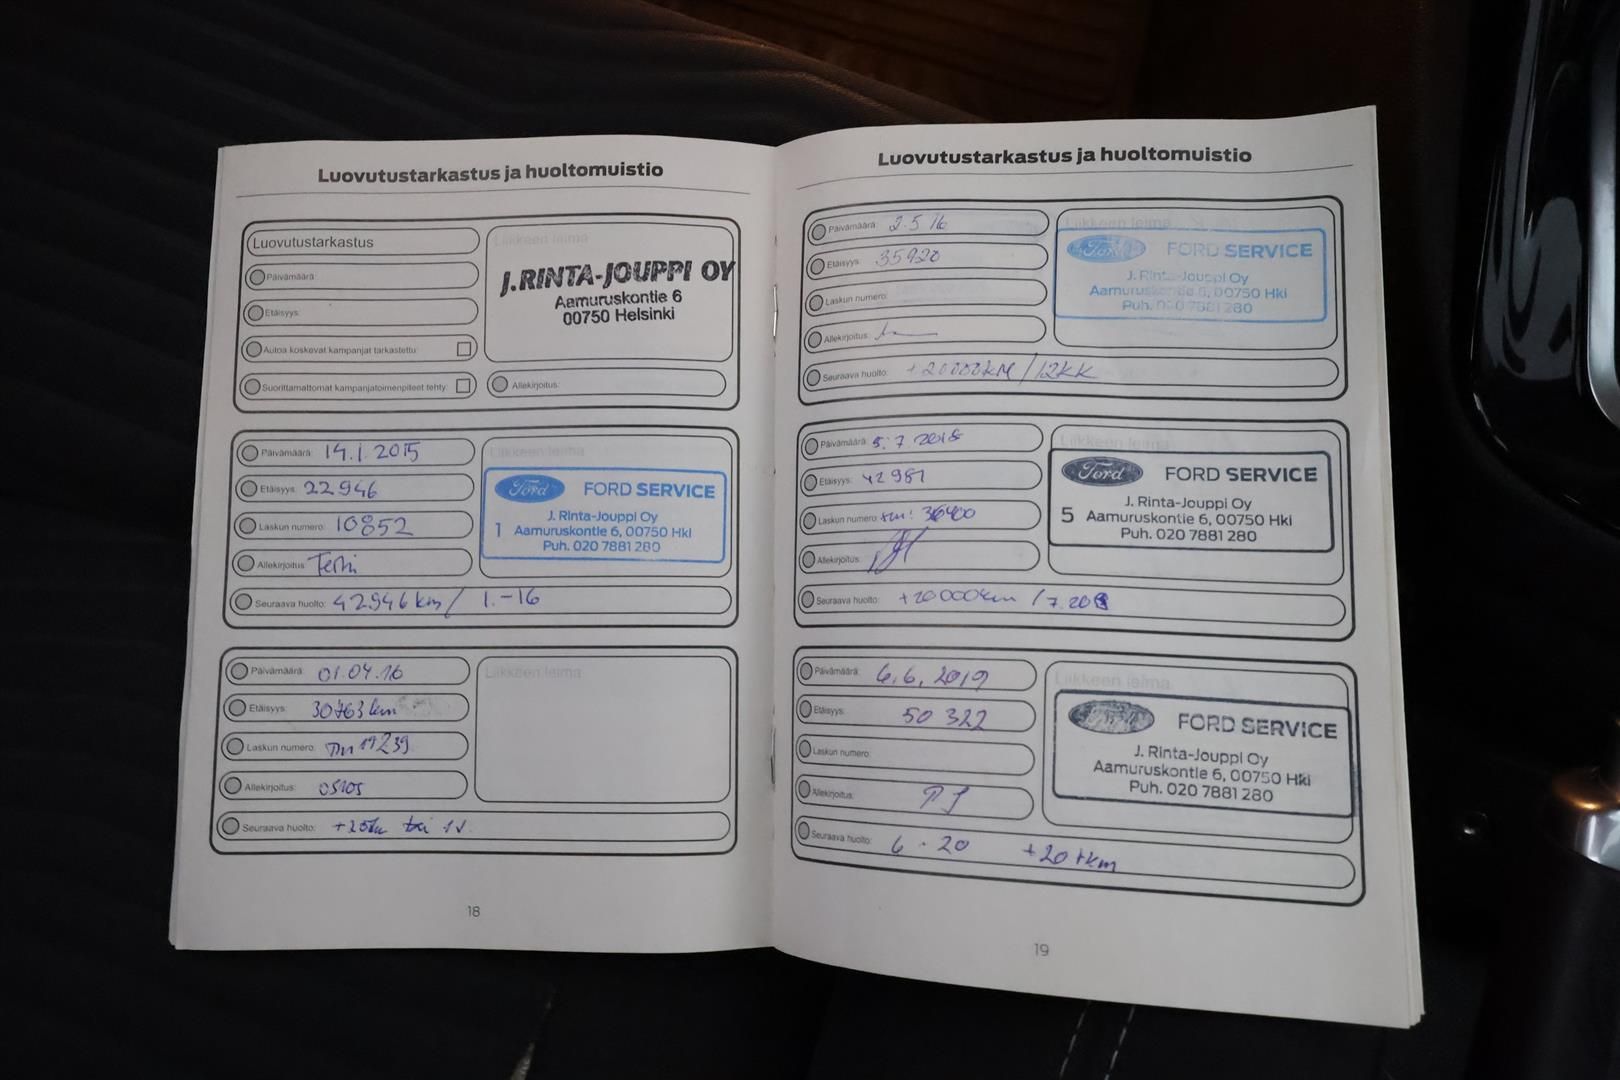 Luovutustarkastus ja huoltomuistio
Luovutustarkastus
Liikkeen leima
Päivämäärä:
Etäisyys:
Autoa koskevat kampanjat tarkastettu:
Suorittamattomat kampanjatoimenpiteet tehty:
J.RINTA-JOUPPI OY
Aamuruskontie 6
00750 Helsinki
Allekirjoitus:
Päivämäärä: 14.1.2015
Etäisyys: 22946
Laskun numero: 10852
Allekirjoitus:
Seuraava huolto: 42946 km / 1.-16
Liikkeen leima
Ford FORD SERVICE
J. Rinta-Jouppi Oy
1 Aamuruskontie 6, 00750 Hki
Puh. 020 7881 280
Päivämäärä: 01.04.16
Etäisyys: 30763 km
Laskun numero: 19239
Allekirjoitus:
Seuraava huolto: tai 1v.
Liikkeen leima
18
Luovutustarkastus ja huoltomuistio
Päivämäärä: 2.5 16
Etäisyys: 35920
Laskun numero:
Allekirjoitus:
Seuraava huolto: +20000KM/12KK
Liikkeen leima
Ford FORD SERVICE
J. Rinta-Jouppi Oy
Aamuruskontie 6, 00750 Hki
Puh. 020 7881 280
Päivämäärä: 5.7 2018
Etäisyys: 42981
Laskun numero:
Allekirjoitus:
Seuraava huolto: +20000km /7.20
Liikkeen leima
Ford FORD SERVICE
J. Rinta-Jouppi Oy
5 Aamuruskontie 6, 00750 Hki
Puh. 020 7881 280
Päivämäärä: 6.6.2019
Etäisyys: 50 322
Laskun numero:
Allekirjoitus:
Seuraava huolto: 6-20 +20tkm
Liikkeen leima
Ford FORD SERVICE
J. Rinta-Jouppi Oy
Aamuruskontie 6, 00750 Hki
Puh. 020 7881 280
19